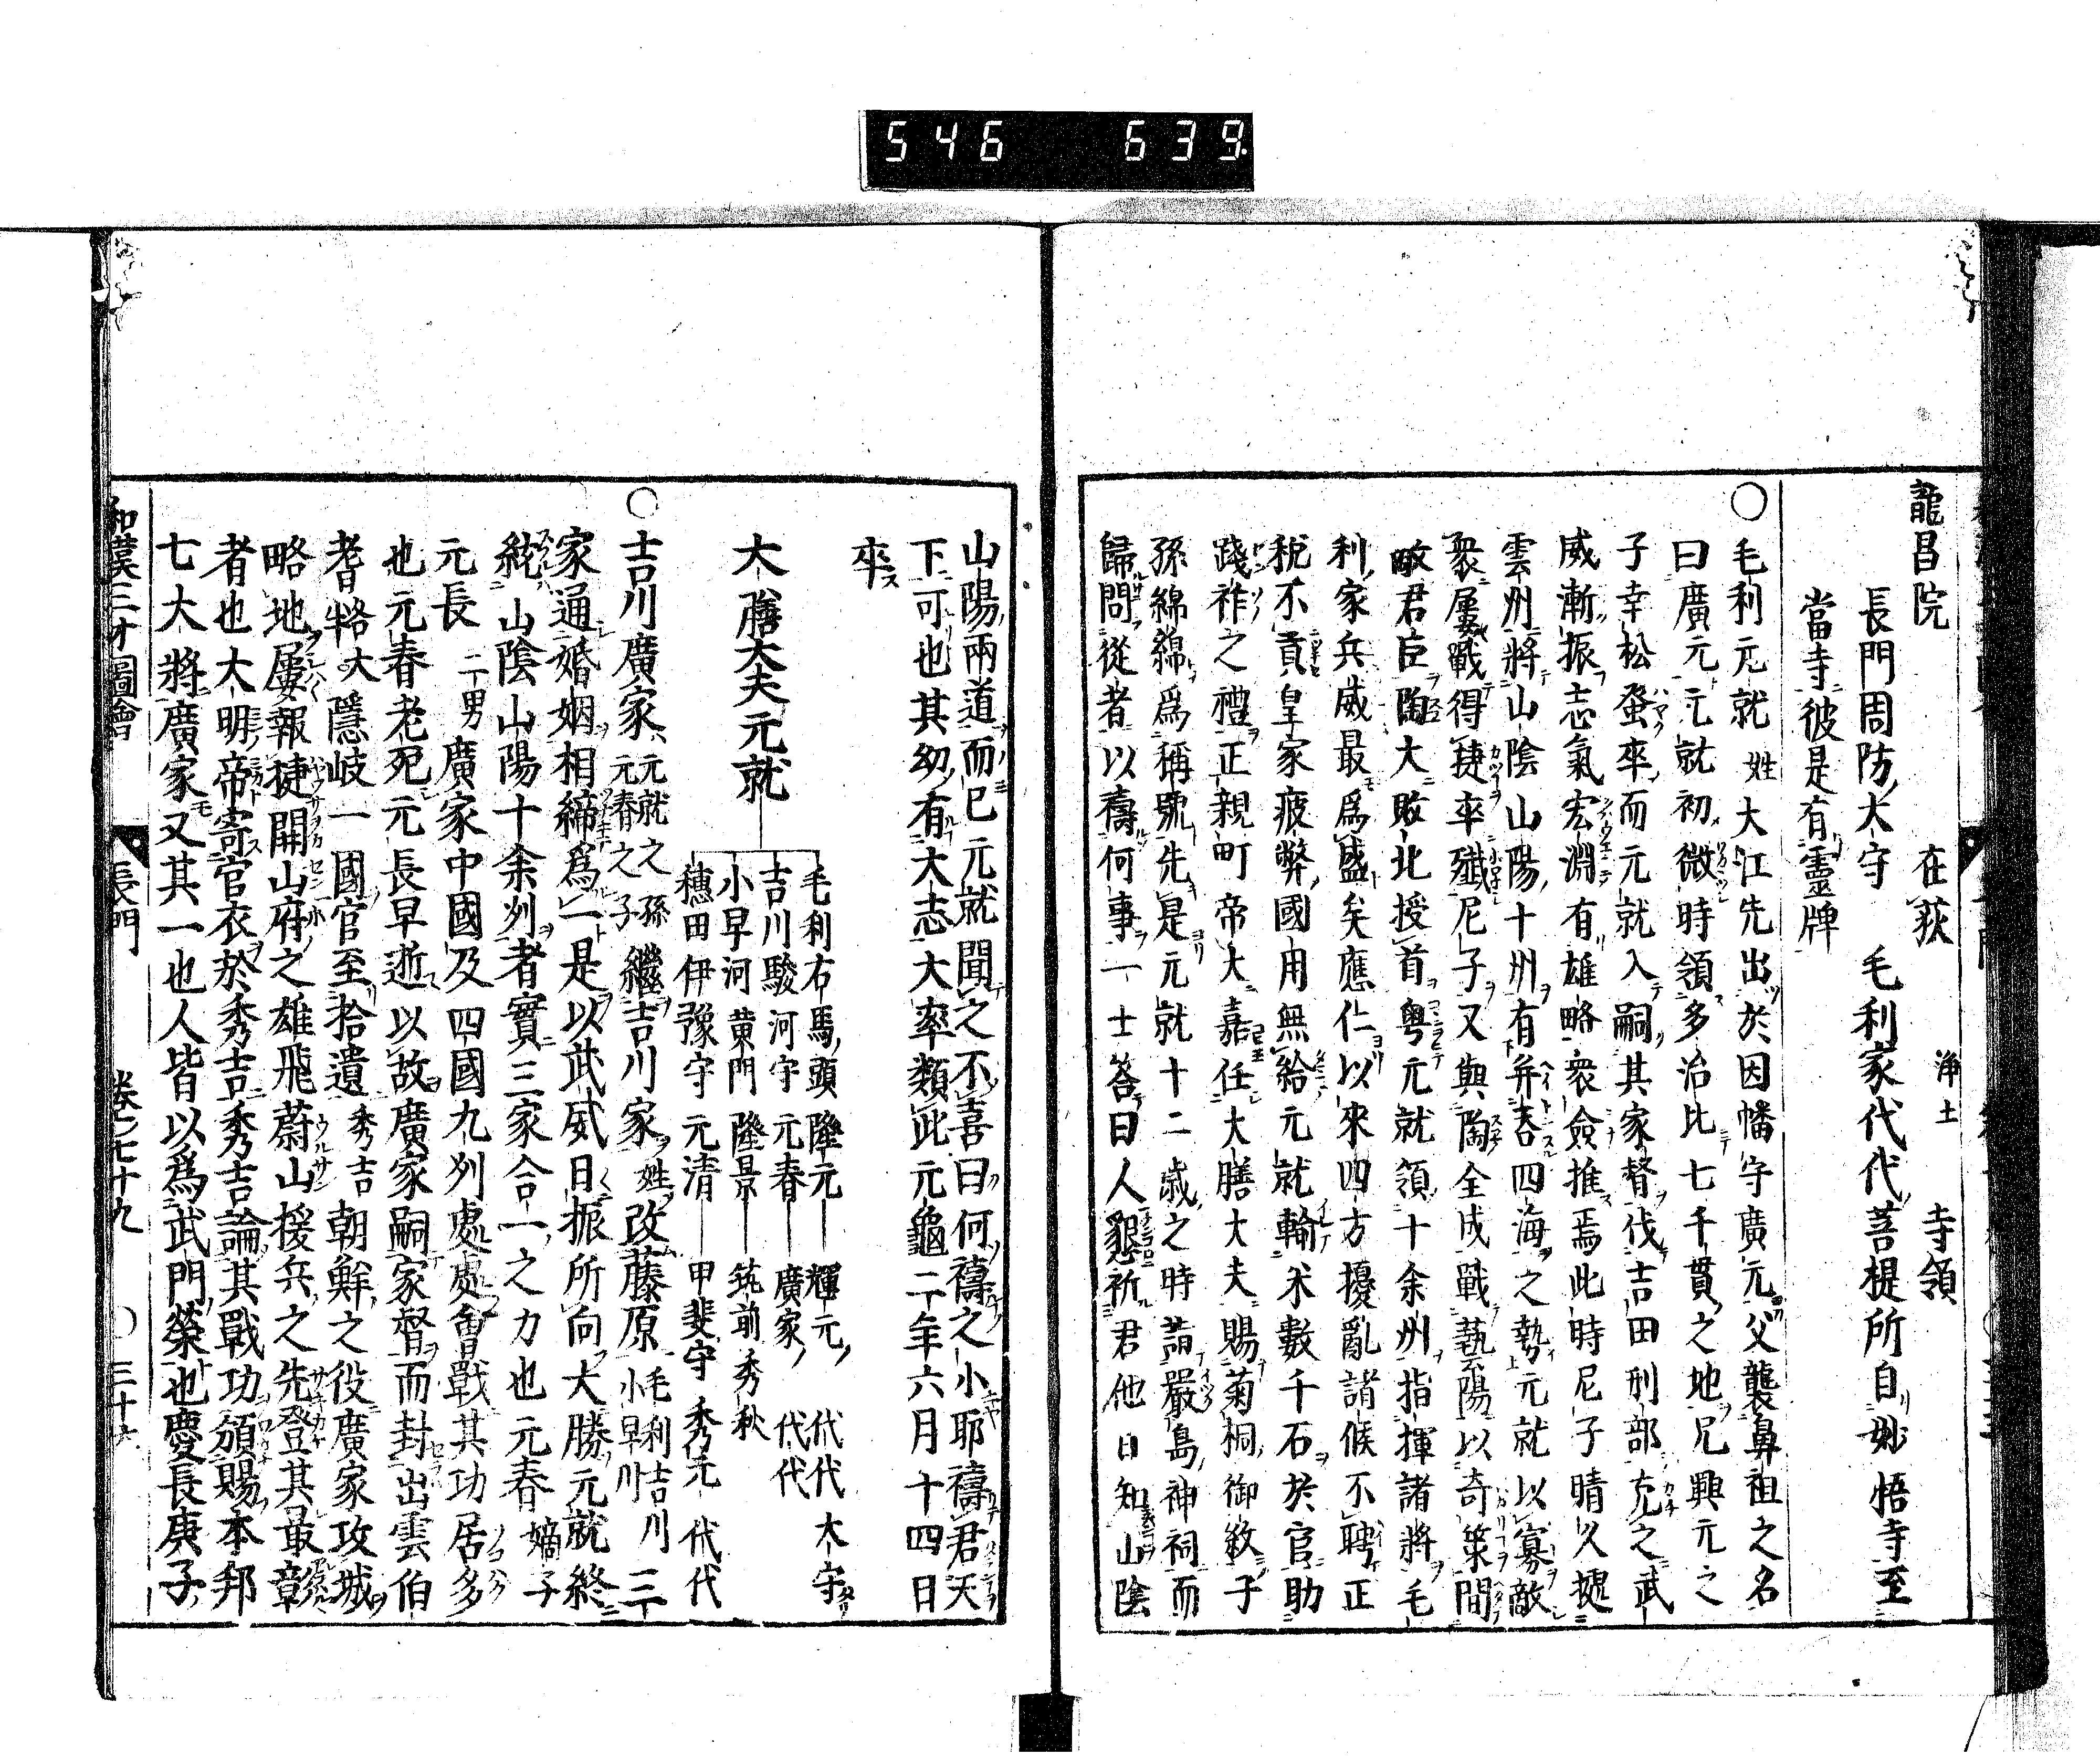 546 639
龍昌院 在荻 淨土 寺領
長門周防大守 毛利家代代菩提所自妙悟寺至
當寺彼是有靈牌
○毛利元就 姓大江先出於因幡守廣元父襲鼻祖之名
曰廣元元就初微時領多治比七千貫之地兄興元之
子幸松蚤卒而元就入嗣其家督伐吉田刑部克之武
威漸振志氣宏淵有雄略衆僉推焉此時尼子晴久據
雲州將山陰山陽十州有并吞四海之勢元就以寡敵
衆屢戰得捷卒殲尼子又與陶全成戰藝陽以奇策間
敵君臣陶大敗北授首粤元就領十余州指揮諸將毛
利家兵威最爲盛矣應仁以來四方擾亂諸候不聘正
税不貢皇家疲弊國用無給元就輸米數千石於官助
踐祚之禮正親町帝大嘉任大膳大夫賜菊桐御紋子
孫綿綿爲稱號先是元就十二歳之時詣嚴島神祠而
歸問從者以禱何事一士答曰人懇祈君他日知山陰
山陽兩道而已元就聞之不喜曰何禱之小耶禱君天
下可也其幼有大志大率類此元龜二年六月十四日
卒
大膳大夫元就
毛利右馬頭隆元 輝元 代代大守
吉川駿河守元春 廣家 代代
小早河黄門隆景 筑前秀秋
穗田伊豫守元清 甲斐守秀元 代代
○吉川廣家 元就之孫元春之子 繼吉川家姓改藤原 毛利吉川小早川 三
家通婚姻相締爲一是以武威日振所向大勝元就終
統山陰山陽十余州者實三家合一之力也元春嫡子
元長 二男 廣家中國及四國九州處處會戰其功居多
也元春老死元長早逝以故廣家嗣家督而封出雲伯
耆 大 隱岐一國官至拾遺 秀吉朝鮮之役廣家攻城
略地屢報捷開山府之雄飛蔚山援兵之先登其最彰
者也大明帝寄官衣於秀吉秀吉論其戰功頒賜本邦
七大將廣家又其一也人皆以爲武門榮也慶長庚子
和漢三才圖會 長門 卷之七十九 ○三十六